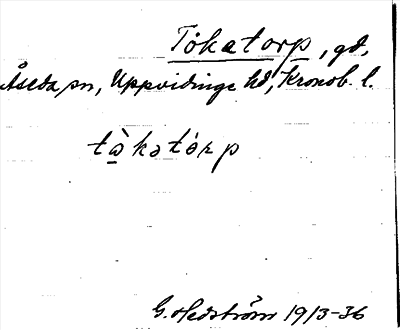 Tökatorp, gd,
Åseda sn, Uppvidinge hd, Kronob. l.
tὰkatórp
G. Hedström 1913-36